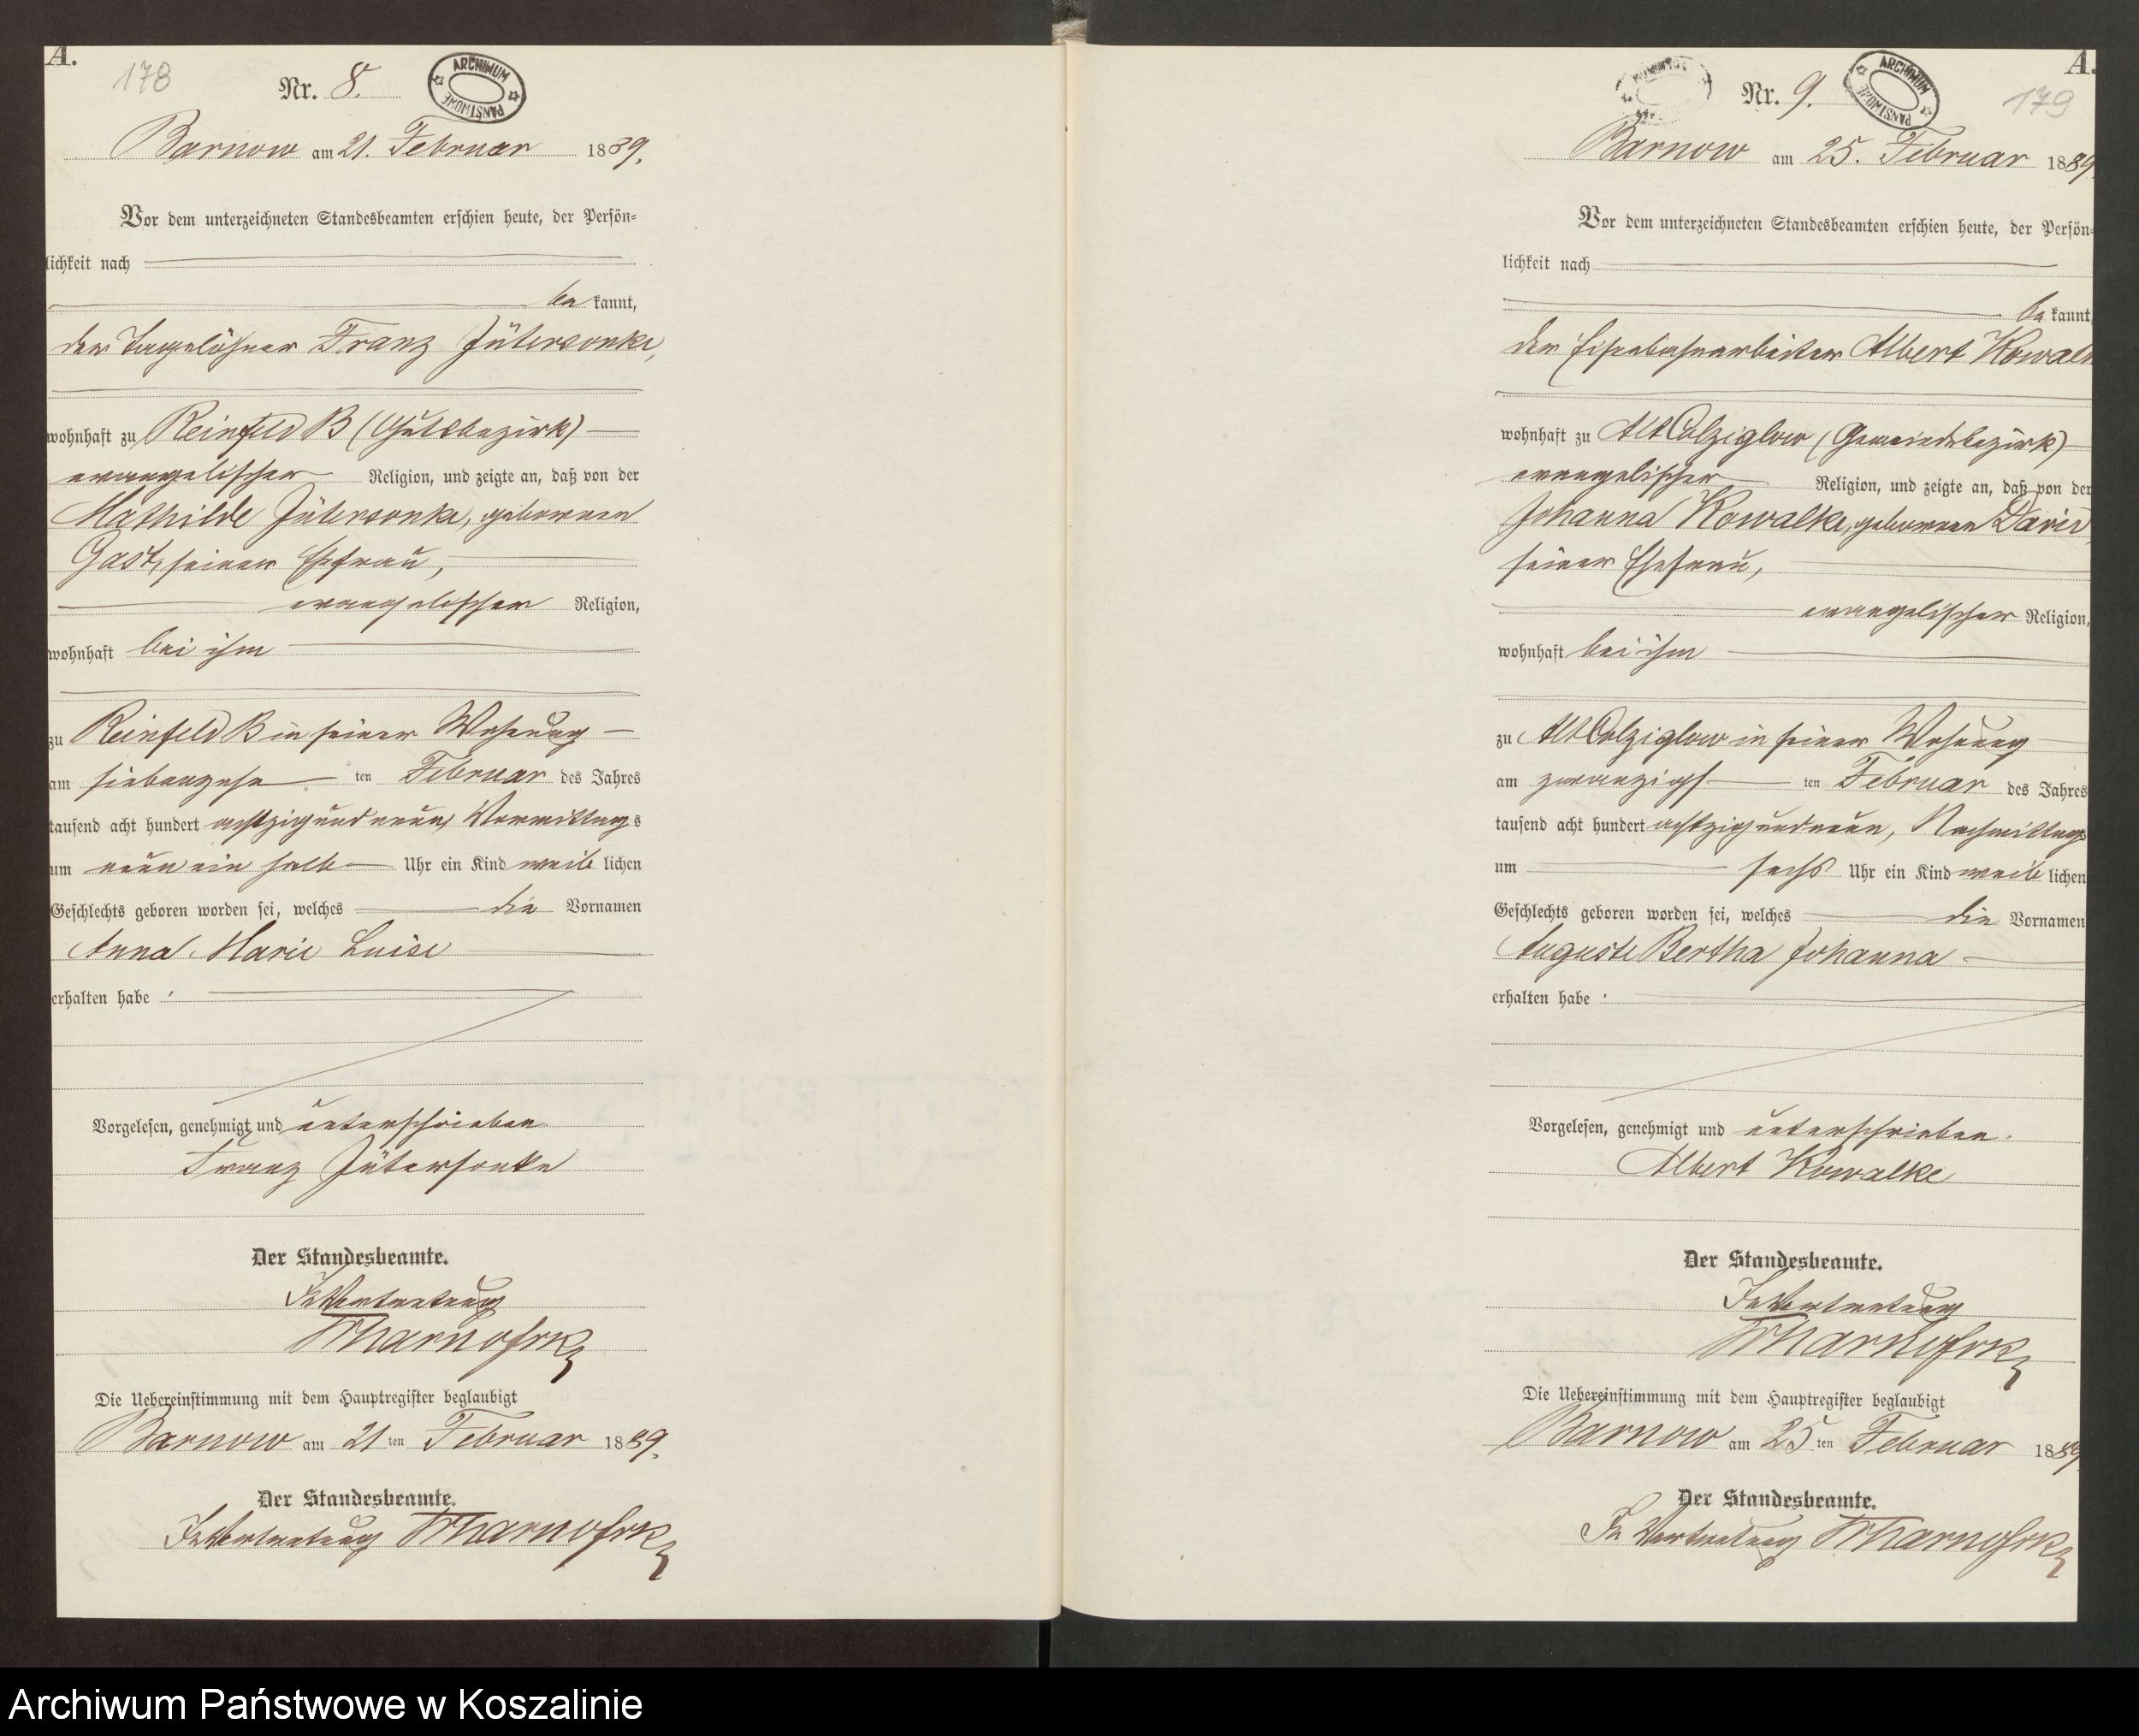 A.
178
Nr. 8.
ARCHIWUM PAŃSTWOWE
Barnow am 21. Februar 1889.
Vor dem unterzeichneten Standesbeamten erschien heute, der Persön-
lichkeit nach
be kannt,
der Tagelöhner Franz Jütersonke,
wohnhaft zu Reinfeld B (Gutsbezirk)
evangelischer Religion, und zeigte an, daß von der
Mathilde Jütersonke, geborenen
Gast, seiner Ehefrau,
evangelischer Religion,
wohnhaft bei ihm
zu Reinfeld B in seiner Wohnung
am siebenzehn ten Februar des Jahres
tausend acht hundert achtzig und neun, Vormittags
um neun ein halb Uhr ein Kind weib lichen
Geschlechts geboren worden sei, welches die Vornamen
Anna Marie Luise
erhalten habe.
Vorgelesen, genehmigt und unterschrieben
Franz Jütersonke
Der Standesbeamte.
In Vertretung
Die Uebereinstimmung mit dem Hauptregister beglaubigt
Barnow am 21 ten Februar 1889.
Der Standesbeamte.
In Vertretung
A.
179
Nr. 9.
ARCHIWUM PAŃSTWOWE
Barnow am 25. Februar 1889.
Vor dem unterzeichneten Standesbeamten erschien heute, der Persön-
lichkeit nach
be kannt,
der Eisenbahnarbeiter Albert Kowalk
wohnhaft zu Alt Colziglow (Gemeindebezirk)
evangelischer Religion, und zeigte an, daß von der
Johanna Kowalke, geborenen David,
seiner Ehefrau,
evangelischer Religion,
wohnhaft bei ihm
zu Alt Colziglow in seiner Wohnung
am zwanzigs ten Februar des Jahres
tausend acht hundert achtzig und neun, Nachmittags
um sechs Uhr ein Kind weib lichen
Geschlechts geboren worden sei, welches die Vornamen
Auguste Bertha Johanna
erhalten habe.
Vorgelesen, genehmigt und unterschrieben.
Albert Kowalke
Der Standesbeamte.
In Vertretung
Die Uebereinstimmung mit dem Hauptregister beglaubigt
Barnow am 25 ten Februar 1889
Der Standesbeamte.
In Vertretung
Archiwum Państwowe w Koszalinie